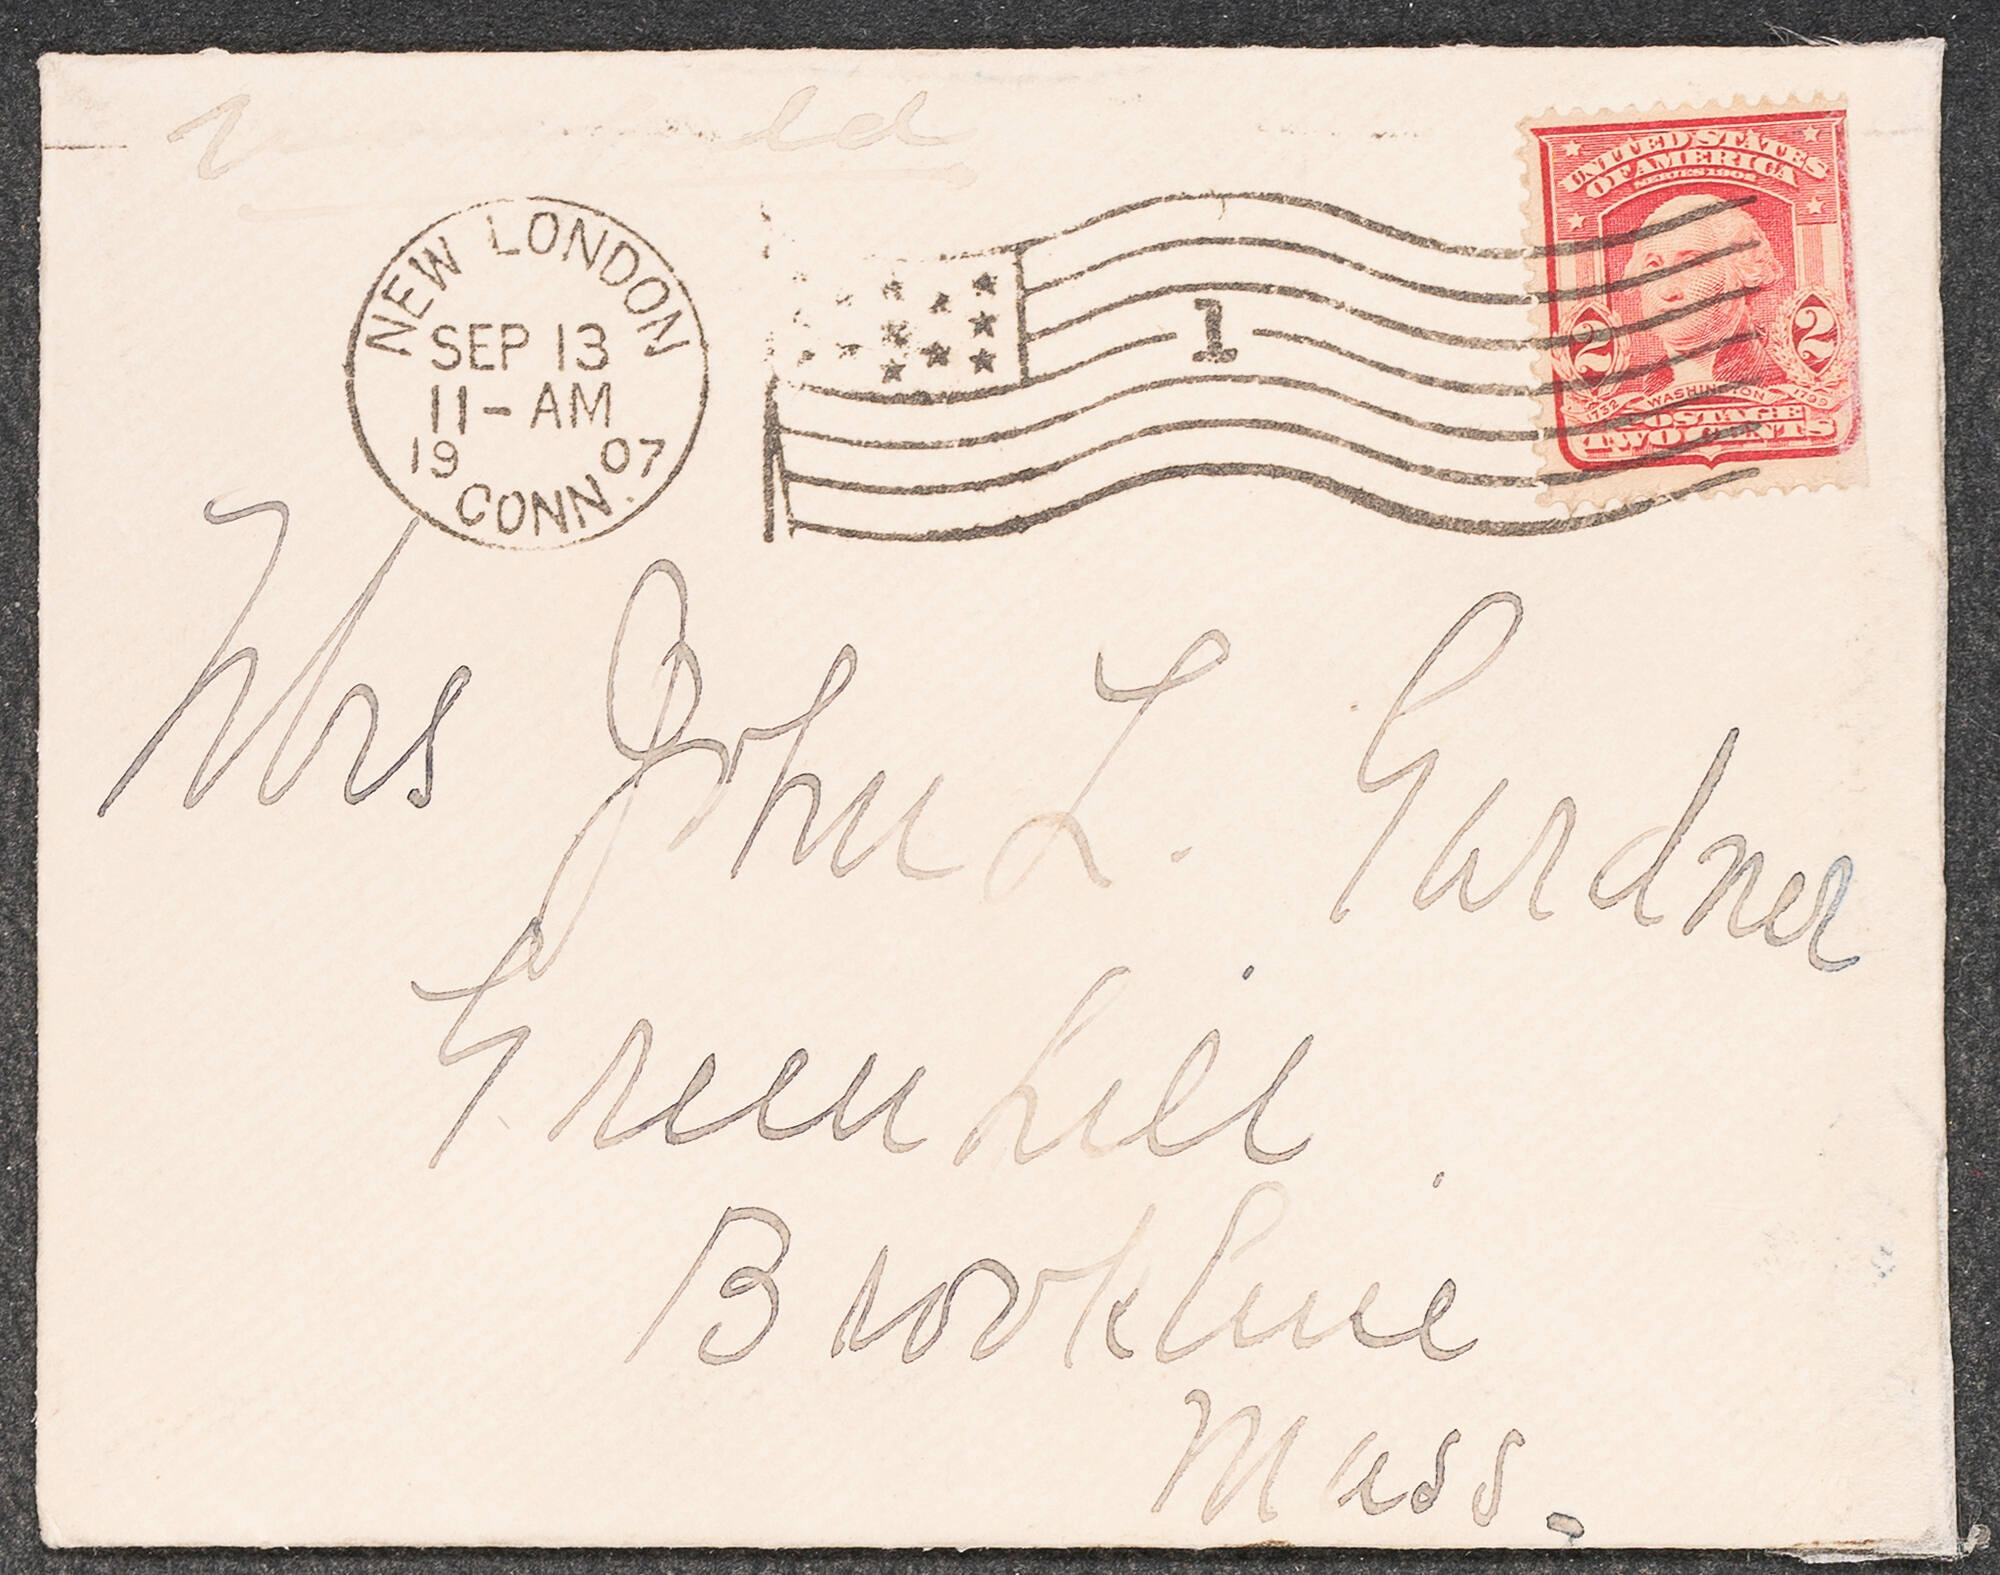 NEW LONDON
SEP 13
11-AM
1907
CONN.
1
UNITED STATES
OF AMERICA
SERIES 1902
2 2
1732 WASHINGTON 1799
POSTAGE
TWO CENTS
Mrs John L. Gardner
Green Hill
Brookline
Mass.